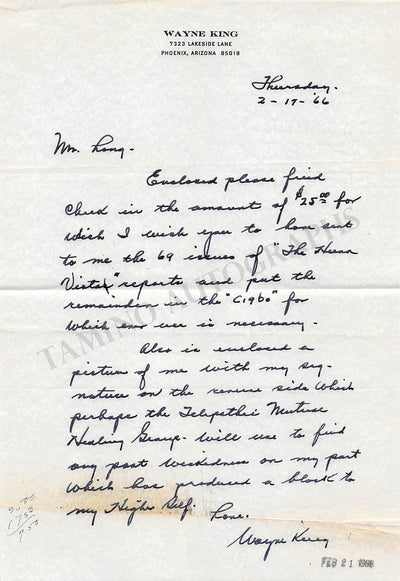 WAYNE KING
7323 LAKESIDE LANE
PHOENIX, ARIZONA 85018
Thursday.
2-17-'66
Mr. Long-
Enclosed please find
check in the amount of $25.00 for
wish I wish you to have sent
to me the 69 issues of "The Huna
Vistas" reports and put the
remainder in the "Cigbo" for
which ever use is necessary.
Also is enclosed a
picture of me with my sig-
nature on the reverse side which
perhaps the Telepathic Mutual
Healing Group - will use to find
any past wickedness on my part
which has produced a block to
my Higher Self.
Love.
Wayne King
FEB 21 1966
TAMINO AUTOGRAPHS